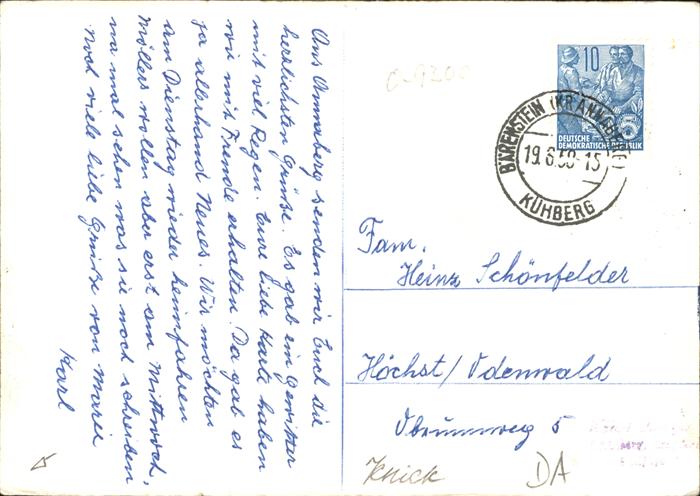 Aus Annaberg senden wir Euch die
herzlichsten Grüße. Es gab ein Gewitter
mit viel Regen. Eure liebe Karte haben
wir mit Freude erhalten. Da gab es
ja allerhand Neues. Wir möchten
am Dienstag wieder heimfahren
Möllers wollen aber erst am Mittwoch,
na mal sehen was sie noch schreiben
Noch viele liebe Grüße von Marie
Karl
C-9200
10
DEUTSCHE
DEMOKRATISCHE REPUBLIK
BÄRENSTEIN (KR ANNABERG)
19.6.58-15
KÜHBERG
Fam.
Heinz Schönfelder
Höchst/Odenwald
5
Knick
DA